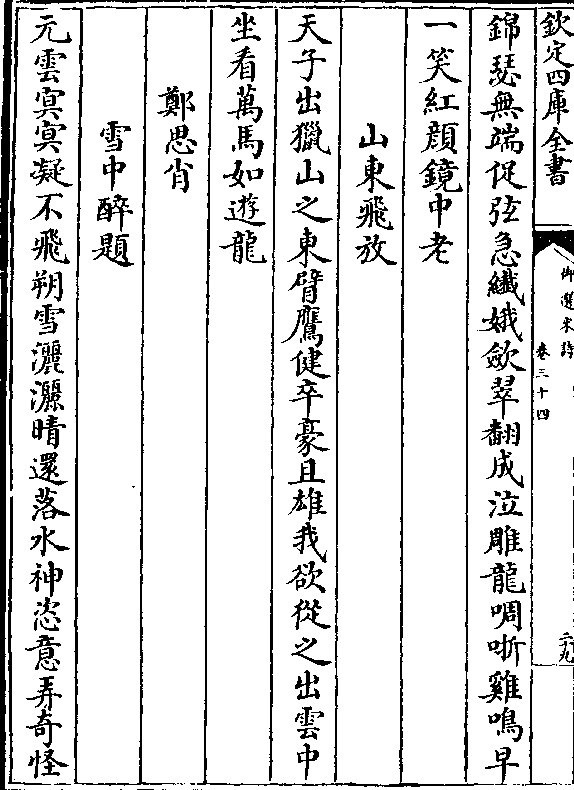 欽定四庫全書
御選宋詩
卷三十四
二九
錦瑟無端促弦急纎娥歛翠翻成泣雕龍啁哳雞鳴早
一笑紅顔鏡中老
山東飛放
天子出獵山之東臂鷹健卒豪且雄我欲從之出雲中
坐看萬馬如遊龍
鄭思肖
雪中醉題
元雲㝠㝠凝不飛朔雪灑灑晴還落水神恣意弄奇怪